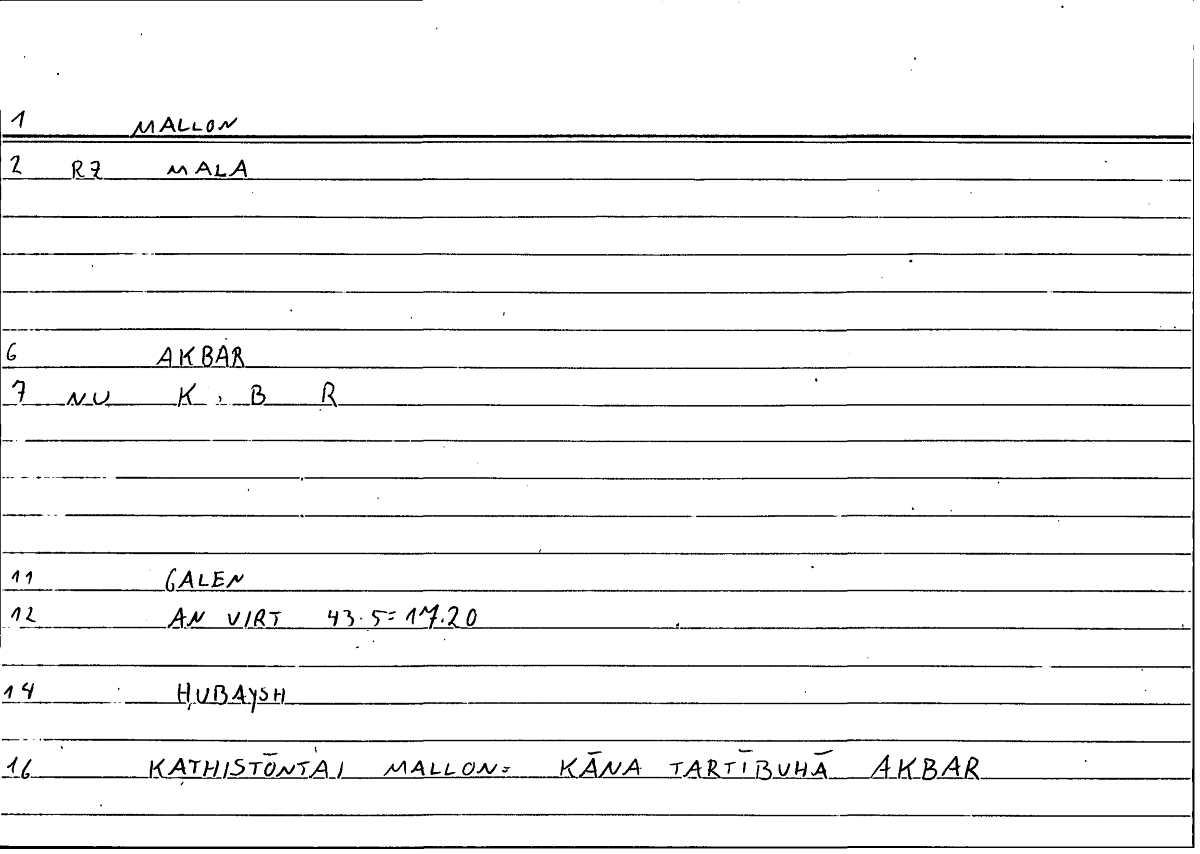 1 MALLON
2 RZ MALA
6 AKBAR
7 NU K , B R
11 GALEN
12 AN VIRT 43.5=17.20
14 ḤUBAYSH
16 KATHISTŌNTAI MALLON= KĀNA TARTĪBUHĀ AKBAR